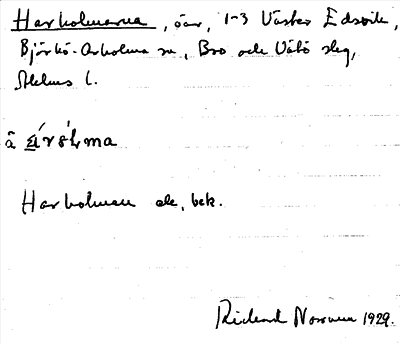 Harholmarna, öar, 1-3 Väster Edsvik,
Björkö-Arholma sn, Bro och Vätö slg,
Sthlms l.
å
Harholmen ek, bek.
Rickard Norman 1929.